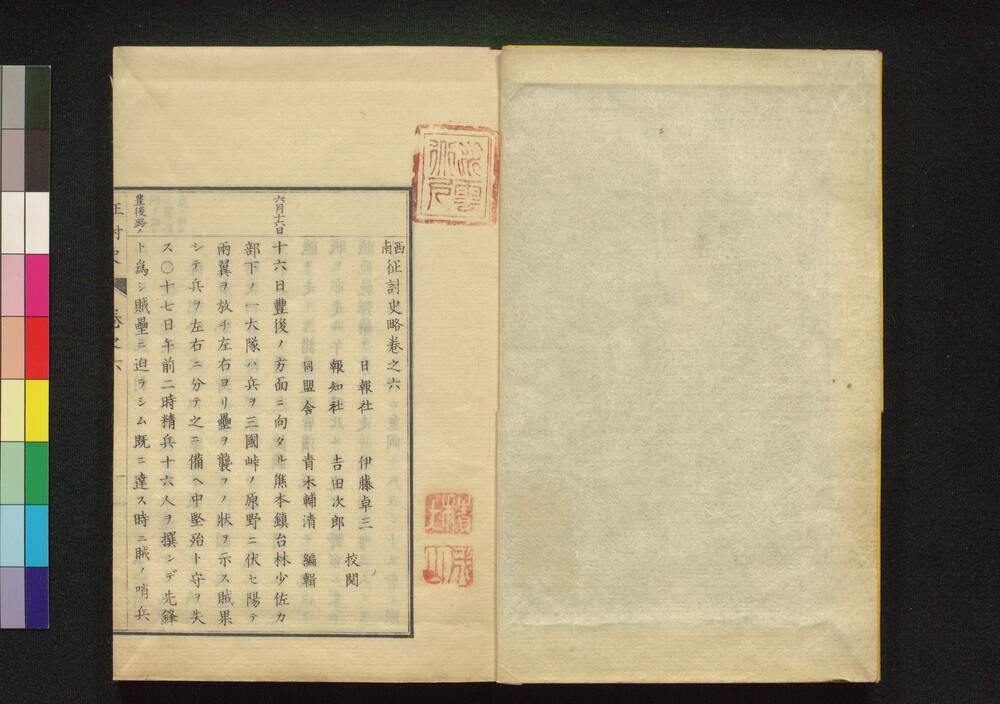 西南征討史略卷之六
日報社 伊藤卓三
報知社 吉田次郎 挍閲
同盟舎 青木輔清 編輯
六月十六日
十六日豊後ノ方面ニ向タル熊本鎮台林少佐カ
部下ノ一大隊ハ兵ヲ三國峠ノ原野ニ伏セ陽テ
兩翼ヲ放チ左右ヨリ壘ヲ襲フノ狀ヲ示ス賊果
シテ兵ヲ左右ニ分テ之ニ備ヘ中堅殆ト守ヲ失
ス〇十七日午前二時精兵十六人ヲ撰シデ先鋒
豊後路ノ
ト爲シ賊壘ニ迫ラシム既ニ達ス時ニ賊ノ哨兵
征討史 卷之六